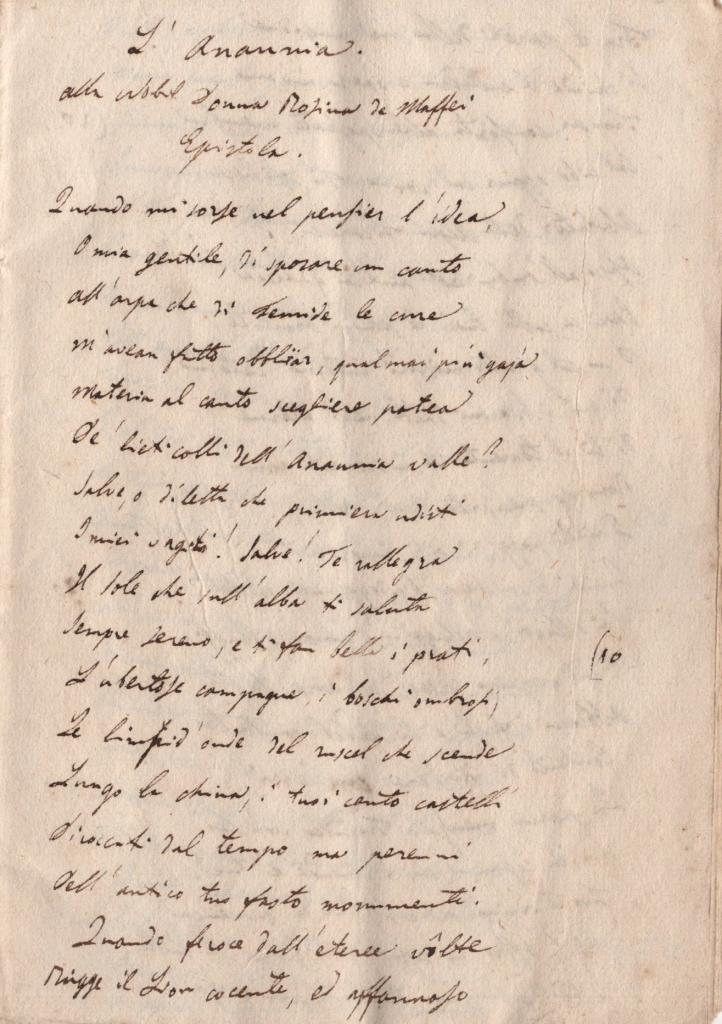 L' Anaunia.
alla Nobil Donna Rosina de Maffei
Epistola.
Quando mi sorse nel pensier l'idea,
O mia gentile, di sposare un canto
All'arpa che di Temide le cure
M'avean fatto obblïar, qual mai più gaja
Materia al canto scegliere potea
De' lieti colli dell'Anaunia valle?
Salve, o diletta che primiera udisti
I miei vagiti! Salve! Te rallegra
Il sole che sull'alba ti saluta
Sempre sereno, e ti fan belli i prati,
(10
L'ubertose campagne, i boschi ombrosi,
Le limpid'onde del ruscel che scende
Lungo la china, i tuoi cento castelli
Diroccati dal tempo ma perenni
Dell'antico tuo fasto monumenti.
Quando feroce dall'eteree vôlte
Rugge il Lion cocente, ed affannoso